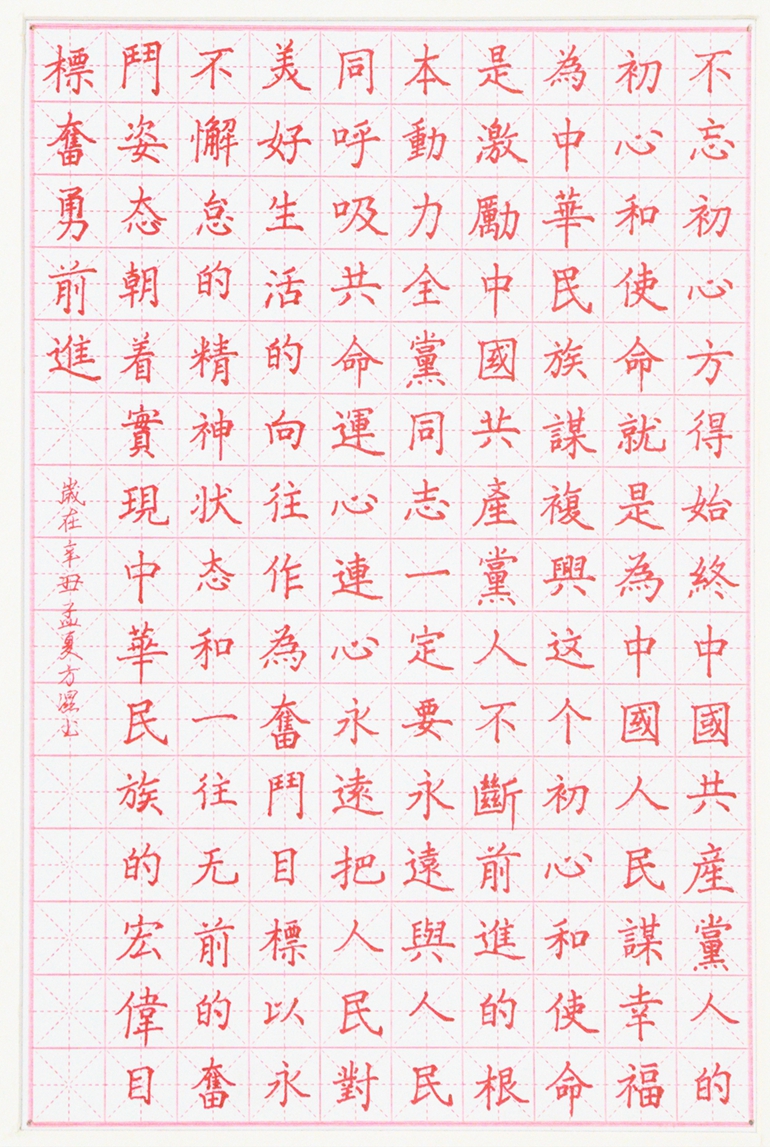 不忘初心方得始終中國共産黨人的
初心和使命就是為中國人民謀幸福
為中華民族謀複興这个初心和使命
是激勵中國共產黨人不斷前進的根
本動力全黨同志一定要永遠與人民
同呼吸共命運心連心永遠把人民對
美好生活的向往作為奮鬥目標以永
不懈怠的精神状态和一往无前的奮
鬥姿态朝着實現中華民族的宏偉目
標奮勇前進
歲在辛丑孟夏方书